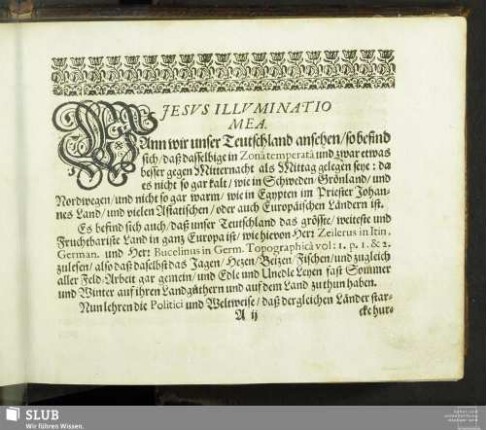 JESVS ILLVMINATIO
MEA.
WAnn wir unser Teutschland ansehen/ so befind
sich/ daß dasselbige in Zonâ temperatâ und zwar etwas
besser gegen Mitternacht als Mittag gelegen seye: da
es nicht so gar kalt/ wie in Schweden/ Grönland/ und
Nordwegen/ und nicht so gar warm/ wie in Egypten im Priester Johan-
nes Land/ und vielen Asiatischen/ oder auch Europäischen Ländern ist.
Es befind sich auch/ daß unser Teutschland das grösste/ weiteste und
Fruchtbariste Land in gantz Europa ist/ wie hievon Herr Zeilerus in Itin.
German. und Herr Bucelinus in Germ. Topographicâ vol: 1. p. 1. & 2.
zu lesen/ also daß daselbst das Jagen/ Hezen/ Beizen/ Fischen/ und zugleich
aller Feld-Arbeit gar gemein/ und Edle und Unedle Leyen fast Sommer
und Winter auf ihren Landgüthern und auf dem Land zu thun haben.
Nun lehren die Politici und Weltweise/ daß dergleichen Länder star-
A ij cke hur-
SLUB
Wir führen Wissen.